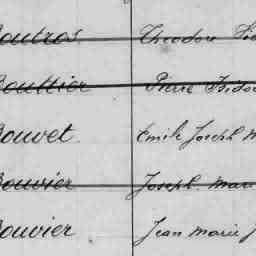 Boutros. Theodore
Bouttier Pierre Isidor
Bouvet. Emile Joseph M
Bouvier Joseph Marie
Bouvier Jean Marie J